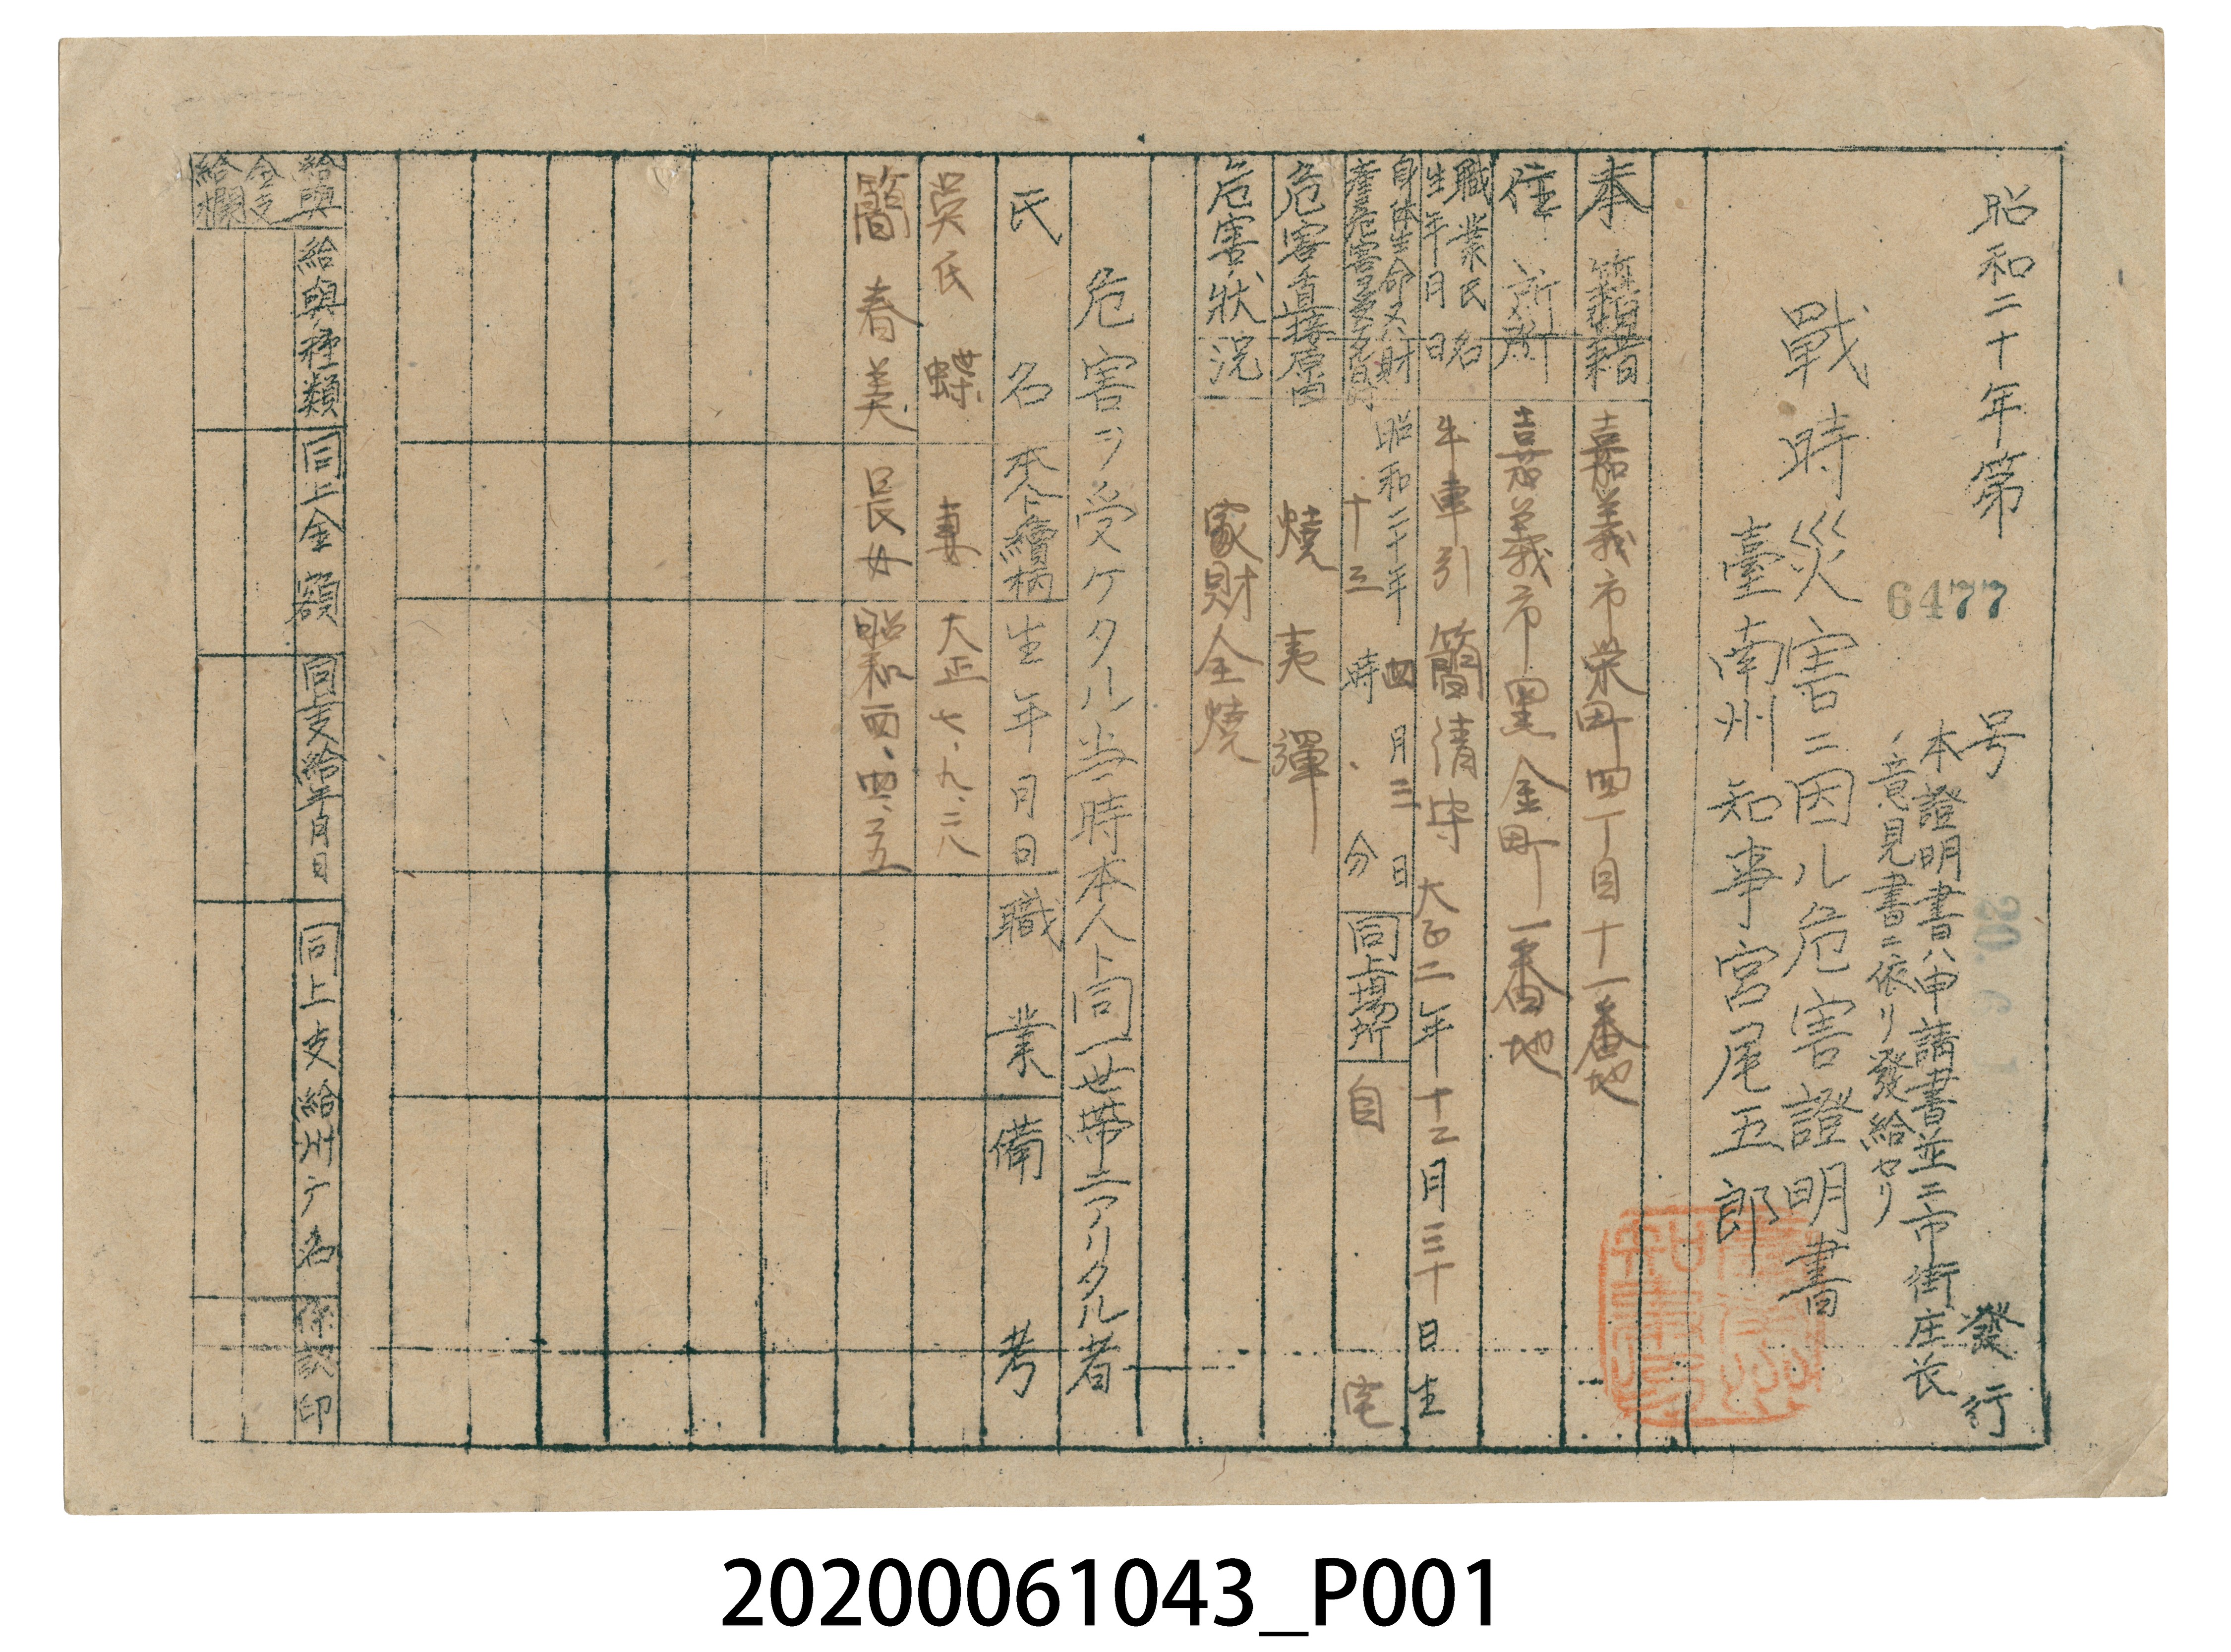 昭和二十年第 6477 号 發行
本證明書ハ申請書並ニ市街庄長
ノ意見書ニ依リ發給セリ
戰時災害ニ因ル危害證明書
臺南州知事宮尾五郎
本籍 嘉義市榮町四丁目十一番地
住所 嘉義市黑金町一番地
職業氏名
生年月日
牛車引 簡清守 大正二年十二月三十日生
身体生命又ハ財
產危害ヲ受ケ
昭和二十年四月三日
十三時 分
同上場所 自宅
危害直接原因 燒夷彈
危害狀況 家財全燒
危害ヲ受ケタル当時本人ト同一世帶ニアリタル者
氏名 本人ト續柄 生年月日 職業 備考
吳氏蝶 妻 大正七、九、二八
簡春美 長女 昭和
給與 給與種類 同上金額 同上支給年月日 同上支給州庁名 係認印
金支
給欄
20200061043_P001